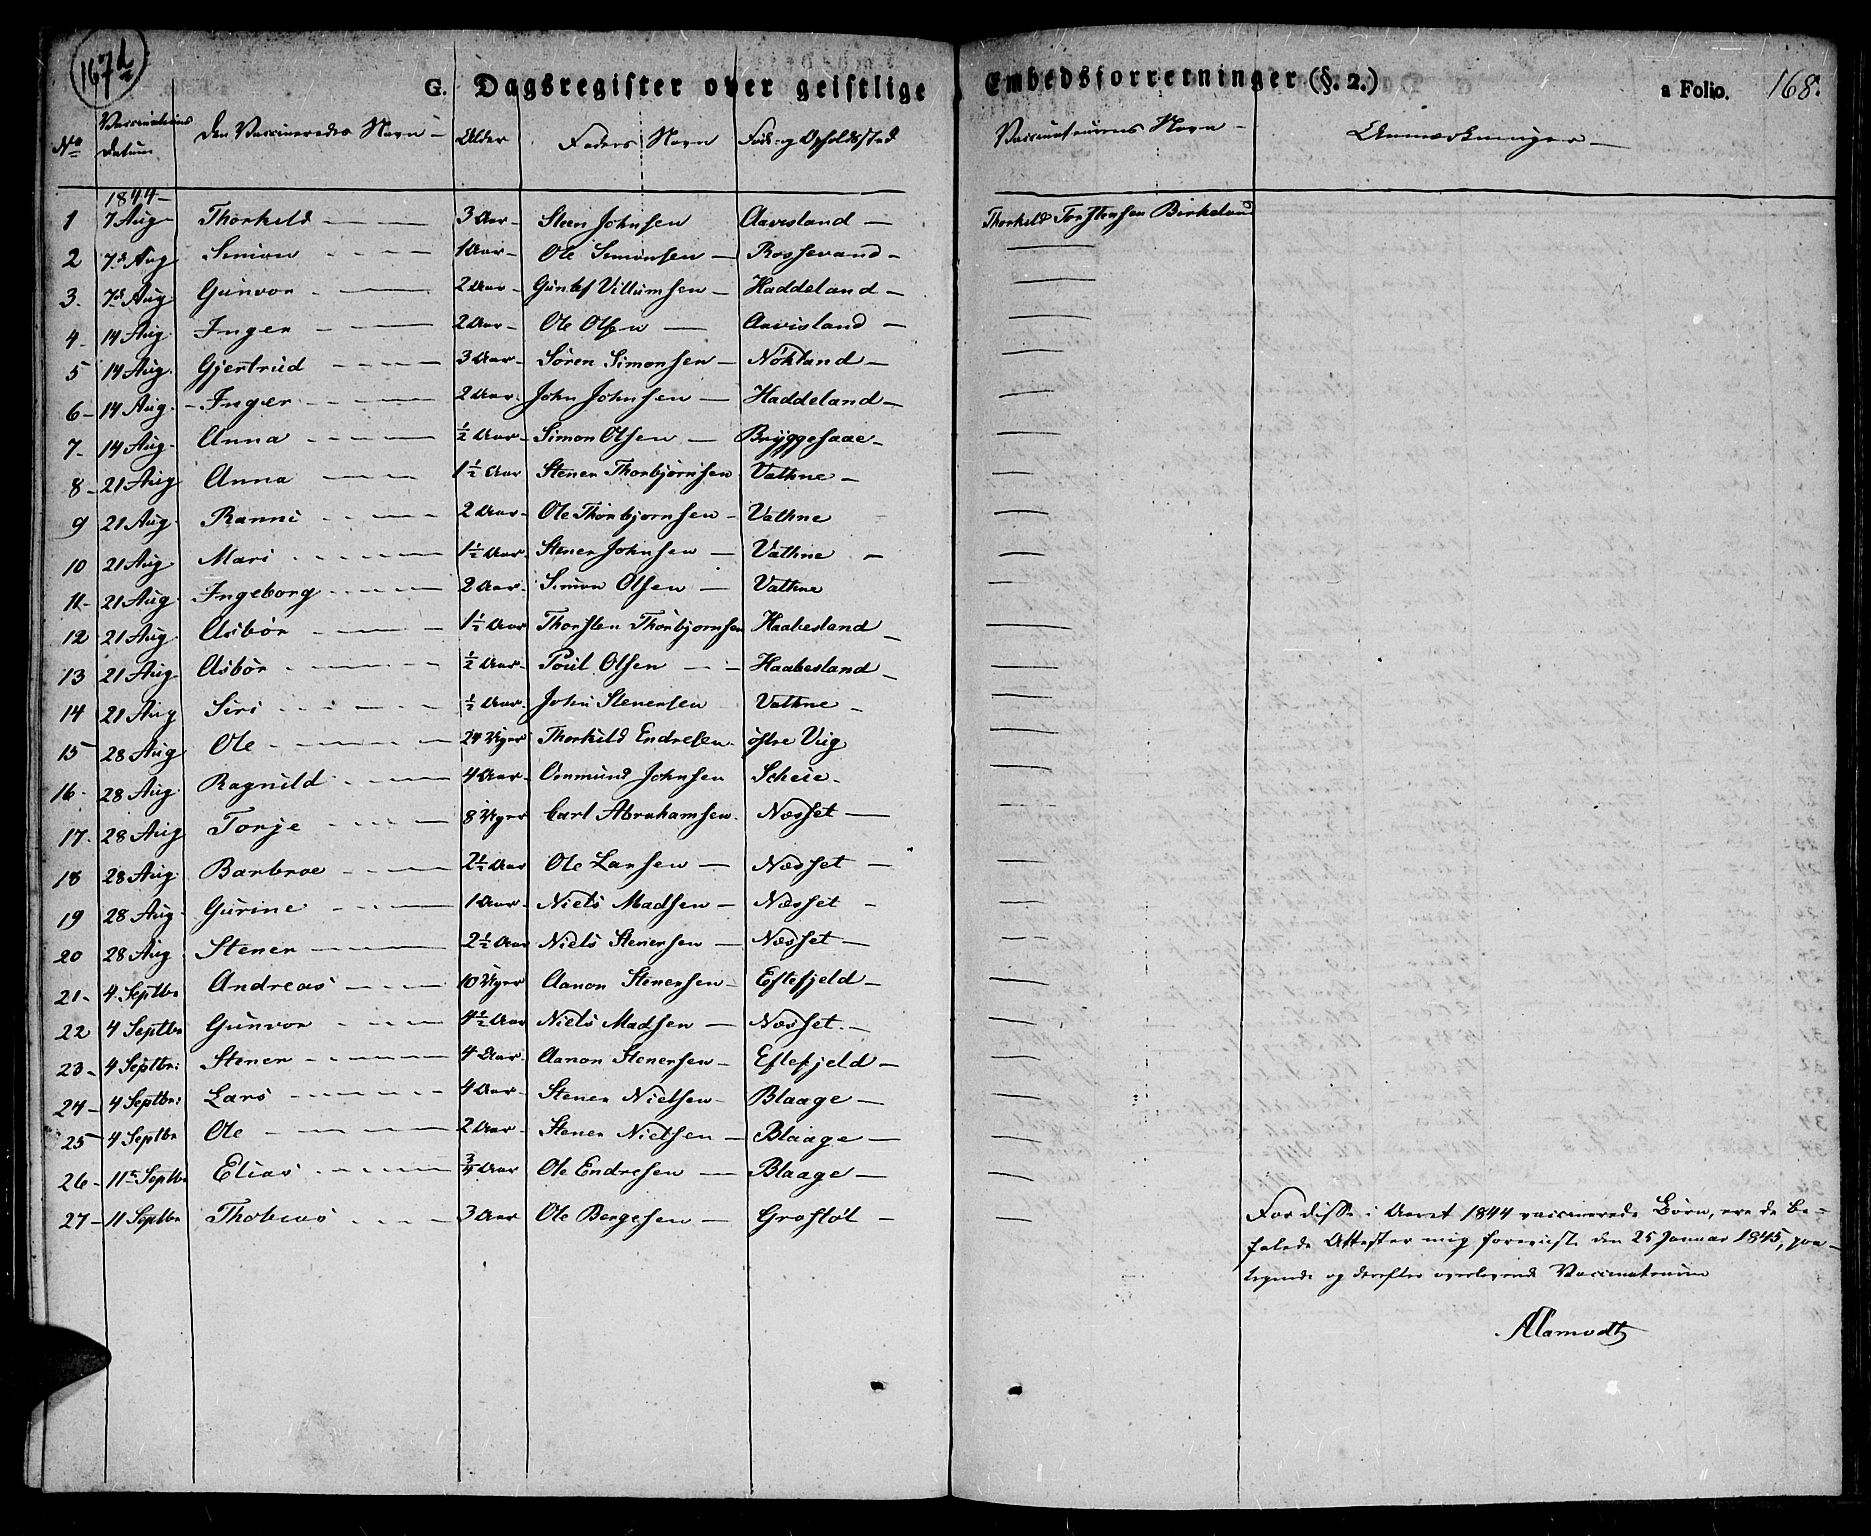 167d
G. Dagsregister over geistlige Embedsforretninger (§. 2.) a Folio. 168.
No Vaccinations Datum Den Vaccineredes Navn – Alder Faders Navn Føde- og Opholdssted Vaccinateurens Navn – Anmærkninger –
1844 –
1 7 Aug Thorkild 3 Aar – Steen Johnsen Aavesland – Thorkild Torstensen Birkeland
2 7d Aug Simon 1 Aar – Ole Simonsen – Rossevand –
3. 7d Aug Gunvor 2 Aar – Guntef Villumsen – Haddeland –
4. 14 Aug. Inger 2 Aar – Ole Olsen – Aavisland –
5 14 Aug. Gjertrud 3 Aar – Sören Simonsen – Nökland –
6 – 14 Aug. – Inger 2 Aar. John Johnsen – Haddeland –
7 – 14 Aug. Anna ½ Aar – Simon Olsen – Bryggesaae –
8 – 21 Aug Anna 1½ Aar Stener Thorbjornsen Vathne –
9 21 Aug. Ranni 2 Aar – Ole Thorbjornsen – Vathne
10 21 Aug Mari 1½ Aar Stener Johnsen – Vathne –
11 – 21 Aug. Ingeborg 2 Aar. Simon Olsen – Vathne
12 21 Aug. Asbör 1½ Aar Thorsten Thorbjornsen Haabesland –
13 21 Aug. Asbör ½ Aar – Poul Olsen – Haabesland –
14 21 Aug Siri ½ Aar – John Stenersen Vathne –
15 28 Aug Ole 24 Uger Thorkild Endresen. östre Vig
16 – 28 Aug. Ragnild 4 Aar – Ommund Johnsen Scheie –
17. 28 Aug Torje 8 Uger Carl Abrahamsen. Næsset –
18 28 Aug. Barbroe 2½ Aar Ole Larsen – Næsset –
19 28 Aug. Gurine 1 Aar – Niels Madsen – Næsset –
20 28 Aug. Stener 2½ Aar Niels Stenersen – Næsset –
21 – 4. Septbr Andreas 10 Uger Aanon Stenersen – Eftefjeld –
22 4 Septbr Gunvor 4½ Aar Niels Madsen – Næsset. –
23 – 4 Septbr: Stener 4 Aar. Aanon Stenersen – Eftefjeld –
24 – 4 Septbr: Lars 4 Aar – Stener Nielsen – Blaage –
25 4 Septbr Ole 2 Aar. Stener Nielsen – Blaage –
26 – 11te Septbr Elias ¾ Aar Ole Endresen – Blaage –
27 – 11 Septbr Thobias 3 Aar Ole Bergesen – Grostöl –
For disse i Aaret 1844 vaccinerede Börn, ere de be–
falede Attester mig foreviste den 25 Januar 1845, paa–
tegnede og derefter